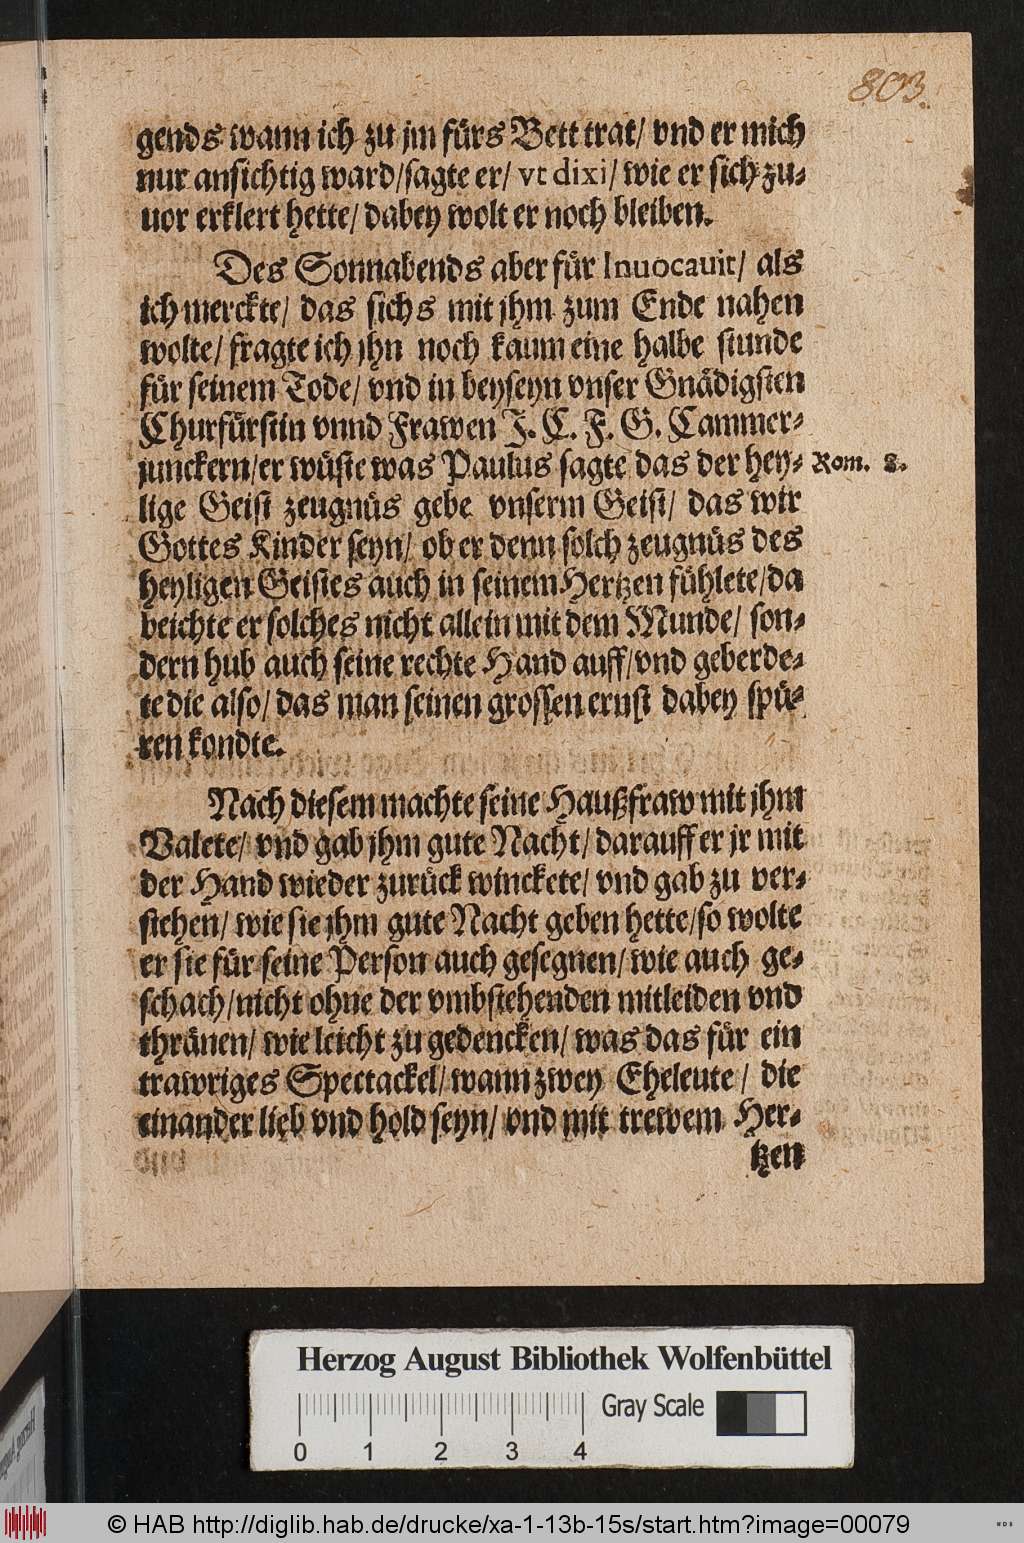 803.
gends wann ich zu jm fürs Bett trat/ vnd er mich
nur ansichtig ward/sagte er/ vt dixi/ wie er sich zu-
uor erklert hette/ dabey wolt er noch bleiben.
Des Sonnabends aber für Inuocauit/ als
ich merckte/ das sichs mit jhm zum Ende nahen
wolte/ fragte ich jhn noch kaum eine halbe stunde
für seinem Tode/ vnd in beyseyn vnser Gnädigsten
Churfürstin vnnd Frawen J. C. F. G. Cammer-
junckern/er wüste was Paulus sagte das der hey-
Rom. 8.
lige Geist zeugnüs gebe vnserm Geist/ das wir
Gottes Kinder seyn/ ob er denn solch zeugnüs des
heyligen Geistes auch in seinem Hertzen fühlete/da
beichte er solches nicht allein mit dem Munde/ son-
dern hub auch seine rechte Hand auff/vnd geberde-
te die also/ das man seinen grossen ernst dabey spü-
ren kondte.
Nach diesem machte seine Haußfraw mit jhm
Valete/ vnd gab jhm gute Nacht/ darauff er jr mit
der Hand wieder zurück winckete/ vnd gab zu ver-
stehen/ wie sie jhm gute Nacht geben hette/so wolte
er sie für seine Person auch gesegnen/ wie auch ge-
schach/nicht ohne der vmbstehenden mitleiden vnd
thränen/ wie leicht zu gedencken/ was das für ein
trawriges Spectackel/ wann zwey Eheleute/ die
einander lieb vnd hold seyn/ vnd mit trewem Her-
tzen
Herzog August Bibliothek Wolfenbüttel
Gray Scale
0 1 2 3 4
© HAB http://diglib.hab.de/drucke/xa-1-13b-15s/start.htm?image=00079